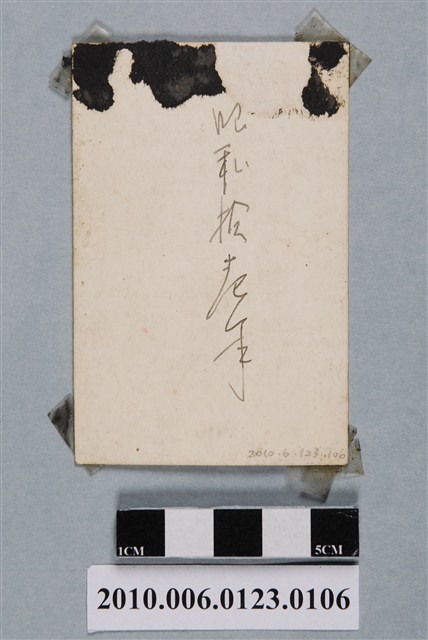 昭和拾壱年
2010.6.123.106
1CM 5CM
2010.006.0123.0106